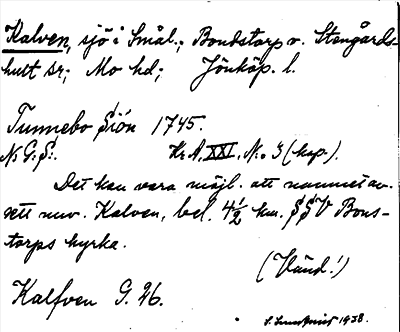 Kalven, sjö i Smål.; Bondstorp o. Stengårds-
hult sr; Mo hd; Jönköp. l.
Tunnebo Siön 1745.
N: G: S:. Kr. A, XXI, N:o 3 (kop.).
Det kan vara möjl. att namnet av-
sett nuv. Kalven, bel. 4½ km. SSV Bons-
torps kyrka.
(Vänd!)
Kalfven G. 26.
1938.